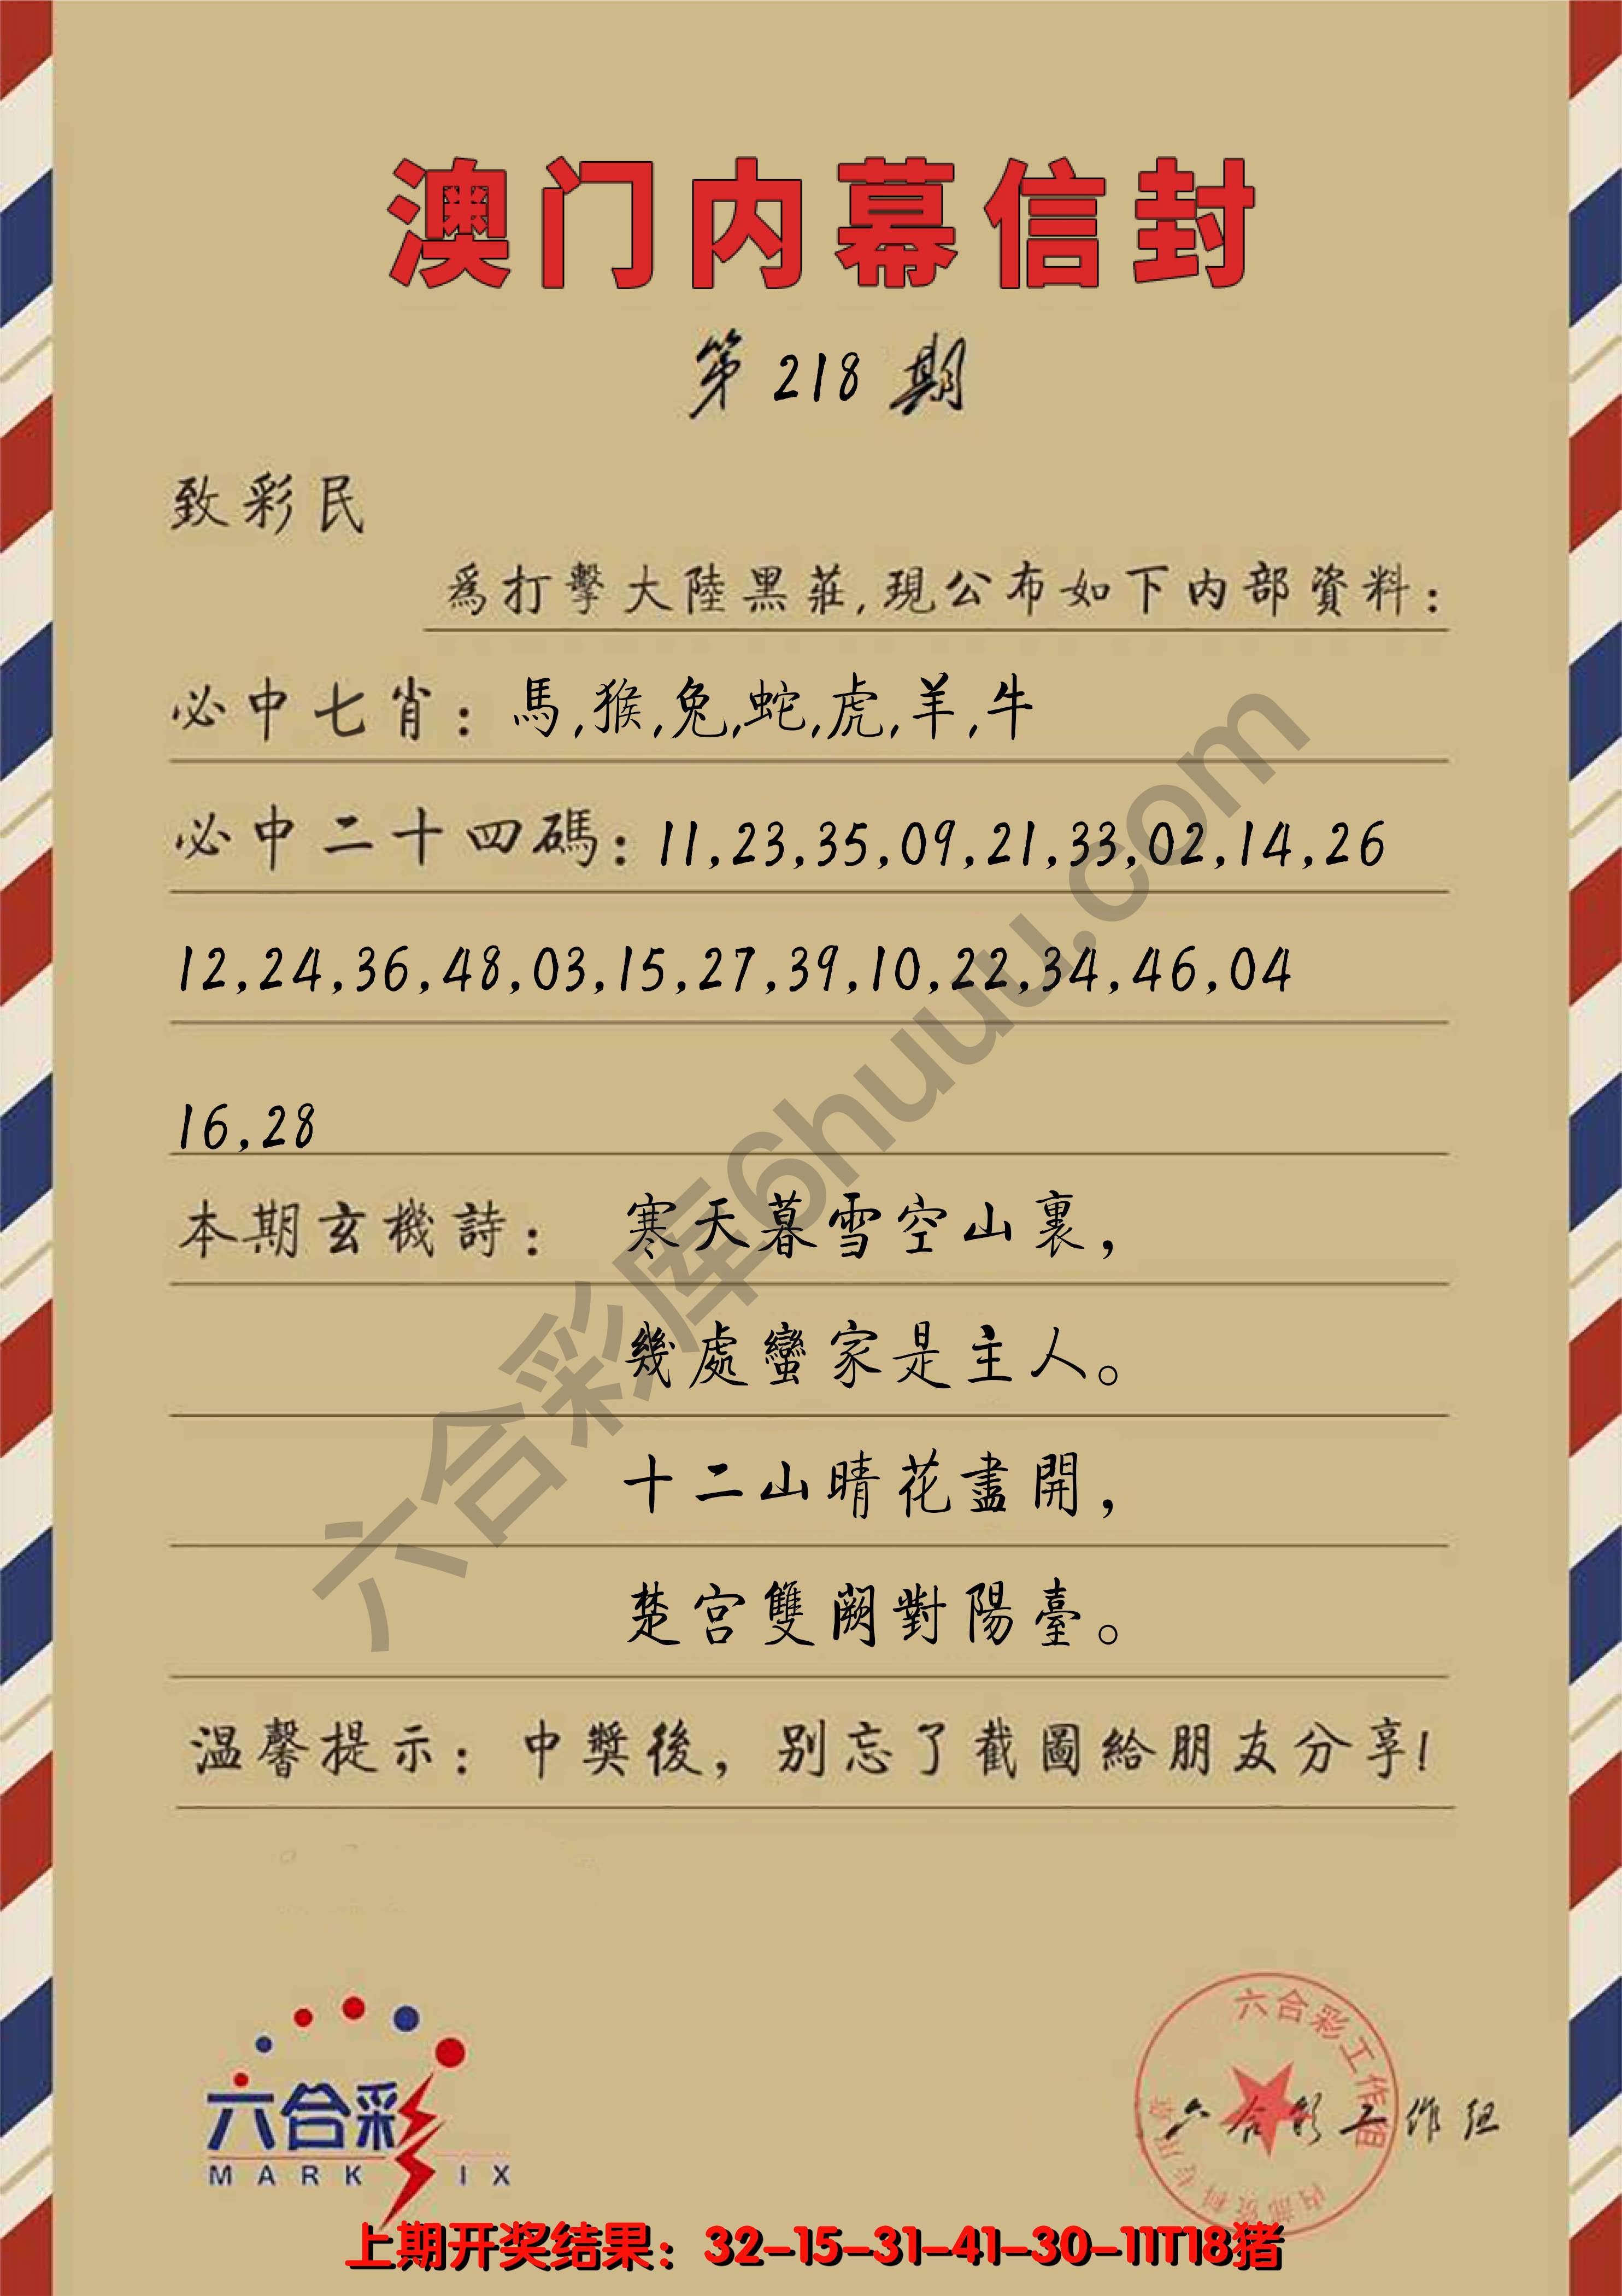 澳门内幕信封
第218期
致彩民
爲打擊大陸黑莊,現公布如下内部資料:
必中七肖:馬,猴,兔,蛇,虎,羊,牛
必中二十四碼:11,23,35,09,21,33,02,14,26
12,24,36,48,03,15,27,39,10,22,34,46,04
16,28
本期玄機詩:寒天暮雪空山裏,
幾處蠻家是主人。
十二山晴花盡開,
楚宫雙阙對陽臺。
温馨提示:中獎後,别忘了截圖給朋友分享!
六合彩库6huuu.com
六合彩
MARK SIX
六合彩工作组
内部资料专用章
六合彩工作组
上期开奖结果:32-15-31-41-30-11T18猪